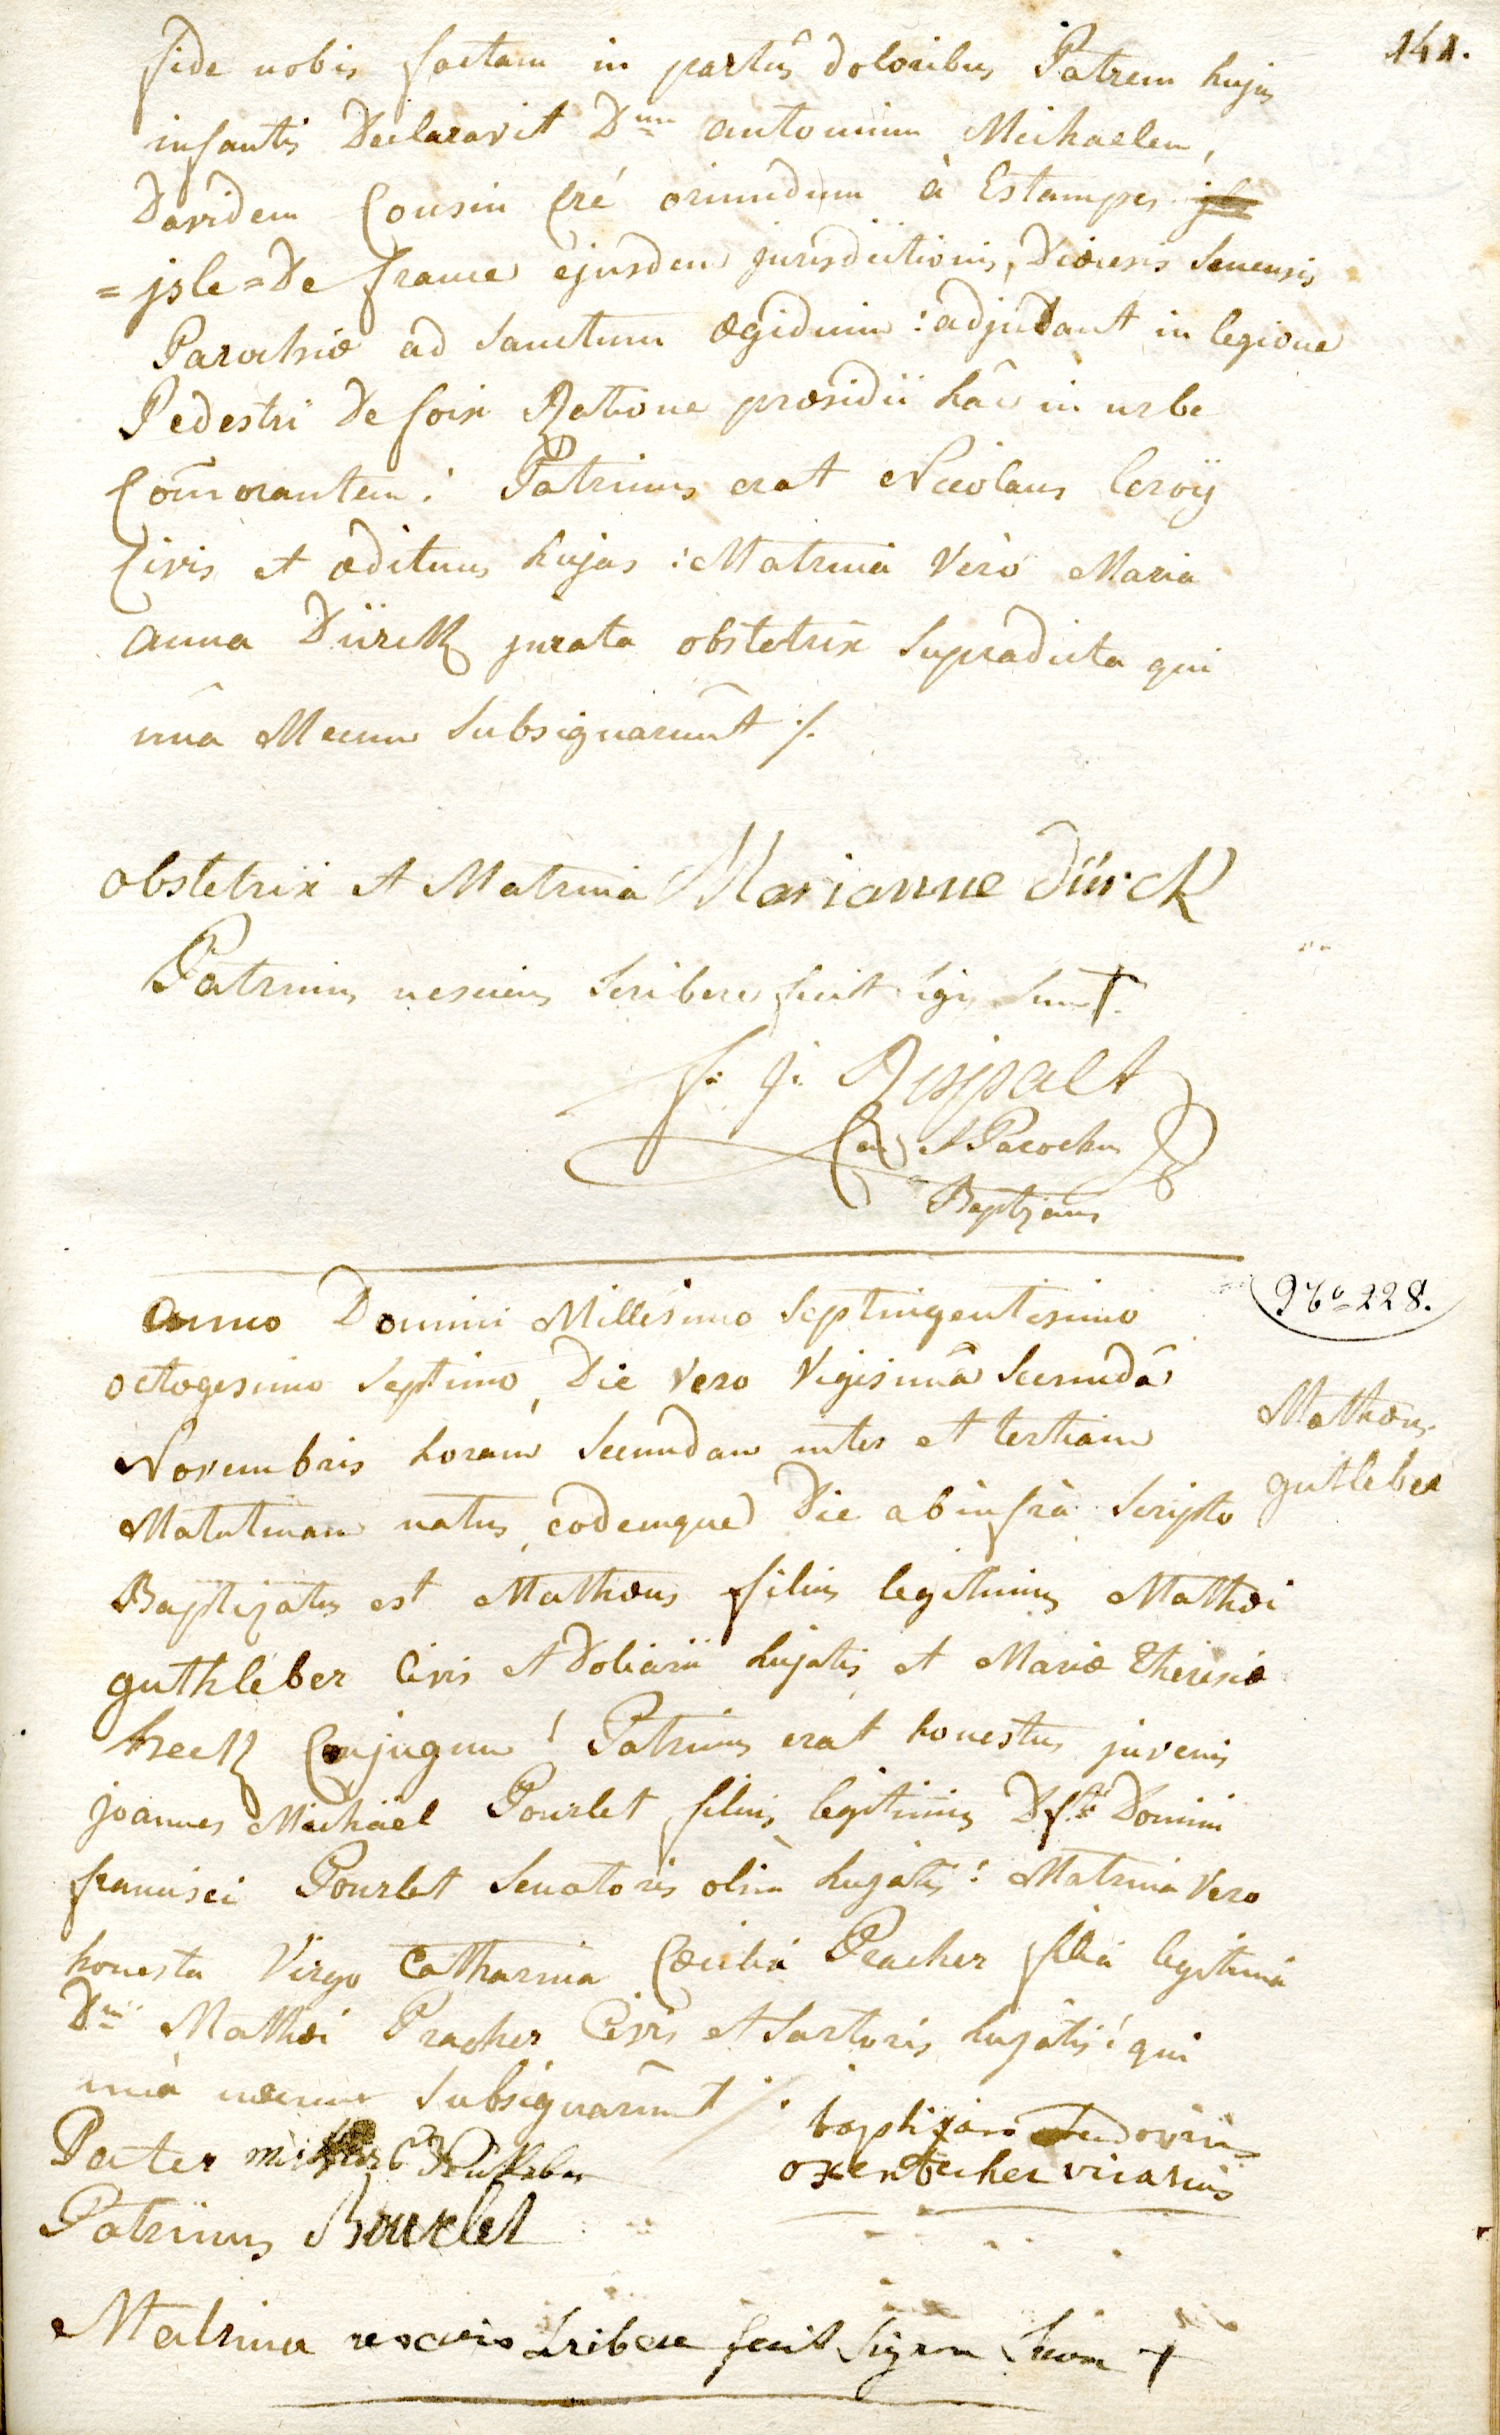 141.
fide nobis factam in partûs doloribus Patrem hujus
infantis Declaravit Dnm antonium Michaelem,
Davidem Cousin Cré oriundum à Estampes
= jsle = De france ejusdem jurisdictionis, Diœcesis Senensis
Parochiæ ad Sanctum Ægidium : adjudant in legione
Pedestri De foix Ratione præsidii hâc in urbe
Com̃orantem : Patrinus erat Nicolaus leroÿ
Civis et ædituus hujas : Matrina Verò Maria
anna Dürck jurata obstetrix Supradicta qui
unà Mecum Subsignarunt ./.
obstetrix et Matrina Marianne Dürck
Patrinus nesciens Scribere fecit Sig. Suum †
f. j. Ruppalt
Can. et Parochus
Baptizans
Anno Domini Millesimo Septingentesimo
Nº 228.
octogesimo Septimo, Die Vero Vigesimâ Secundâ
Mathæus
Novembris horam Secundam inter et tertiam
gutleber
Matutinam natus, eodemque Die ab infrà Scripto
Baptizatus est Mathæus filius legitimus Mathæi
guthleber Civis et Doliarii hujatis et Mariæ Theresiæ
heck Conjugum : Patrinus erat honestus juvenis
joannes Michäel Pourlet filius legitimus Dfti Domini
francisci Pourlet Senatoris olim hujatis : Matrina Vero
honesta Virgo Catharina Cæcilia Pracher filia legitima
Dni Mathæi Pracher Civis et Sartoris hujatis : qui
unà mecum Subsignarunt ./.
baptizavi
Pater
oxenbecher vicarius
Patrinus Bourlet
Matrina nescius Sribere fecit Signum Suum †